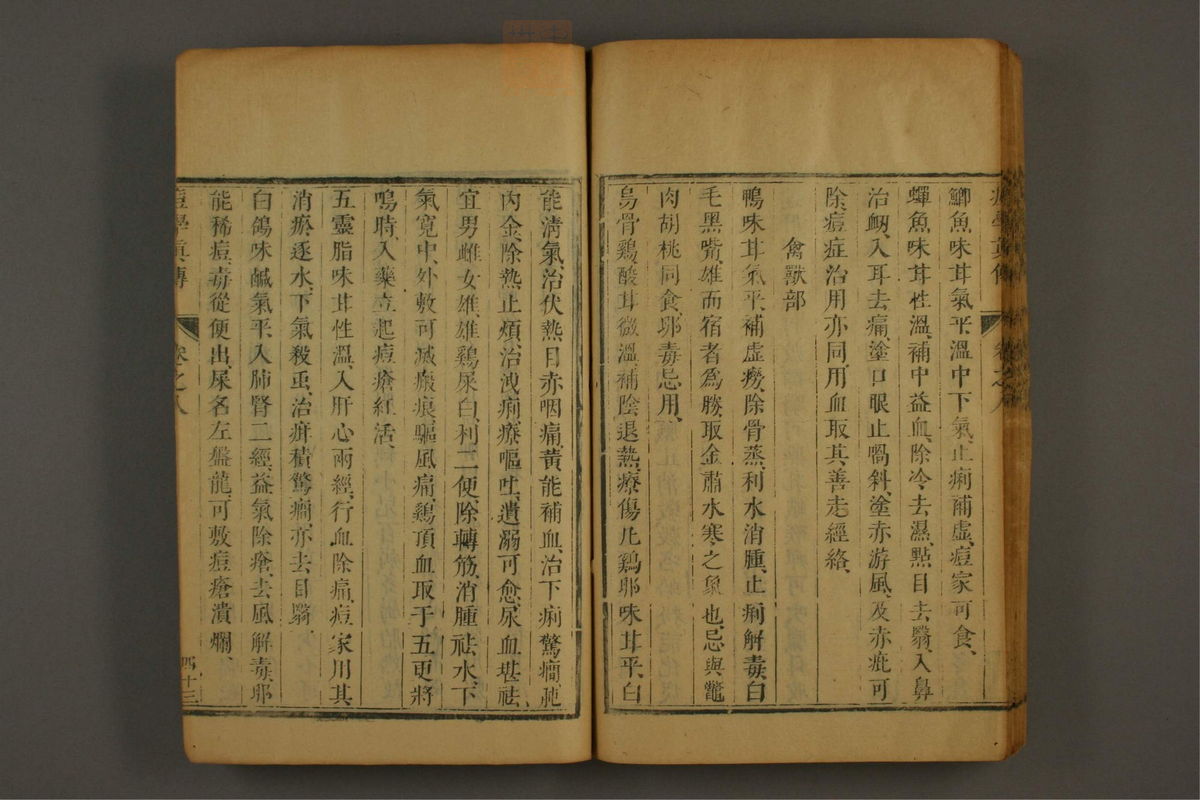 痘學真傳 卷之八
鯽魚味甘氣平、溫中下氣、止痢補虛、痘家可食、
蟬魚味甘性溫、補中益血、除冷、去濕、點目去翳、入鼻
治衂、入耳去痛、塗口眼止喎斜、塗赤游風、及赤疵、可
除痘症治用亦同、用血取其善走經絡、
禽獸部
鴨味甘氣平、補虛癆、除骨蒸、利水消腫、止痢解毒、白
毛黑嘴、雄而宿者爲勝、取金肅水寒之象也、忌與鼈
肉胡桃同食、卵毒忌用、
烏骨鷄酸甘微溫、補陰退熱、療傷、凡鷄卵味甘平、白
能清氣、治伏熱目赤咽痛、黃能補血、治下痢驚癇、肫
內金、除熱止煩、治洩痢、療嘔吐、遺溺可愈、尿血堪祛、
宜男雌女雄、雄鷄屎白、利二便、除轉筋、消腫祛水、下
氣寬中、外敷可滅瘢痕、驅風痛、鷄頂血取于五更將
鳴時、入藥立起痘瘡紅活、
五靈脂味甘性溫、入肝心兩經、行血除痛、痘家用其
消瘀逐水、下氣殺蟲、治疳積驚癇、亦去目翳、
白鴿味鹹氣平、入肺腎二經、益氣除瘡、去風解毒、卵
能稀痘、毒從便出、屎名左盤龍、可敷痘瘡潰爛、
痘學真傳 卷之八 四十三